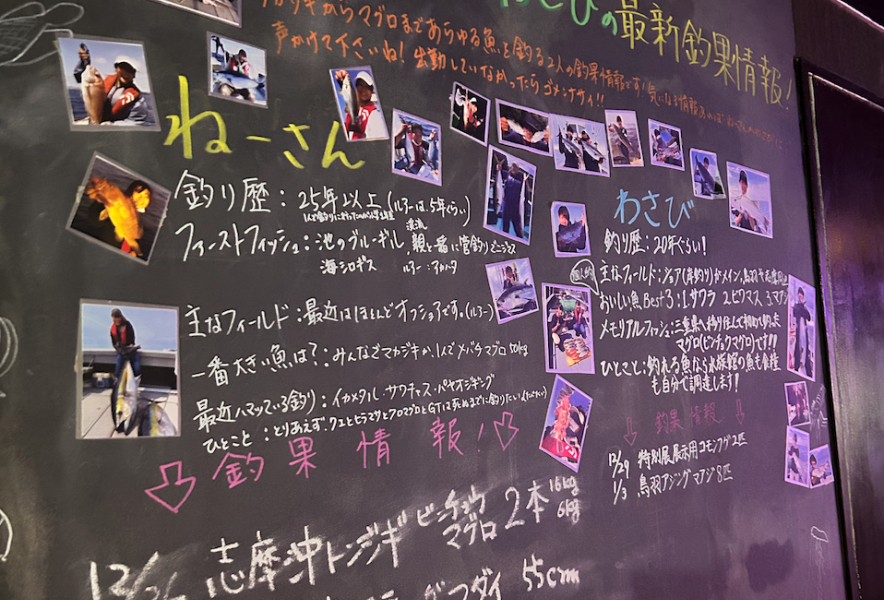 わさびの最新釣果情報!
からマグロまであらゆる魚を釣る2人の釣果情報です!気になる情報
声かけて下さいね!出勤していなかったらゴメンナサイ!!
ねーさん
釣り歴:25年以上(ルアーは、5年ぐらい)
ファーストフィッシュ:池のブルーギル
渓流
親と一緒に管釣りでニジマス
海シロギス
ルアー:アカハタ
主なフィールド:最近はほとんどオフショアです。(ルアー)
一番大きい魚は?:みんなでマカジキか、1人でメバチマグロ50kg
最近ハマッている釣り:イカメタル・サワチャス・パヤオジギング
ひとこと:とりあえず、クエとヒラマサとクロマグロとGTは死ぬまでに釣りたい
釣果情報!
12/
志摩沖トンジギ
ビンチョウ
マグロ
2本
16kg
6kg
ダイ 55cm
わさび
釣り歴:20年ぐらい!
主なフィールド:ショア(岸釣り)がメイン、鳥羽や志摩
おいしい魚Best3:1.サワラ 2.ビワマス 3.マアジ
メモリアルフィッシュ:三重県へ移り住んで初めて釣った
マグロ(ビンチョウマグロ)です!!
ひとこと:釣れる魚なら水族館の魚も食糧
も自分で調達します!!
釣果情報
12/29 特別展展示用コモンフグ2匹
1/3 鳥羽アジング マアジ8匹